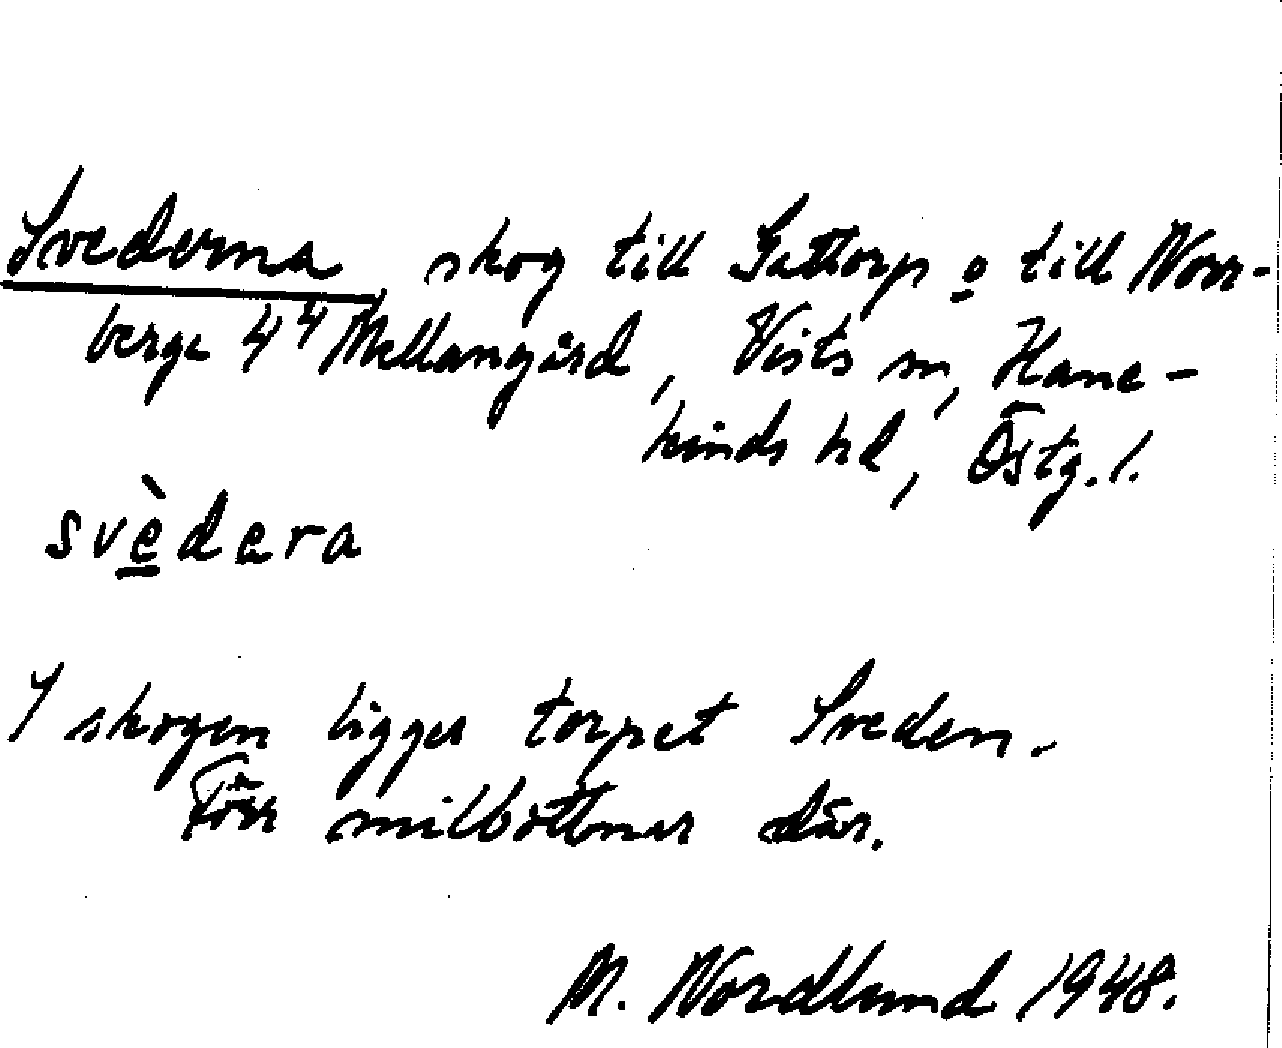 Svederna skog till Gattorp o till Norr-
berga 4⁴ Mellangård, Vists sn, Hane-
kinds hd, Östg. l.
svèdera
I skogen ligger torpet Sveden.
Förr milbottnar där.
M. Nordlund 1948.